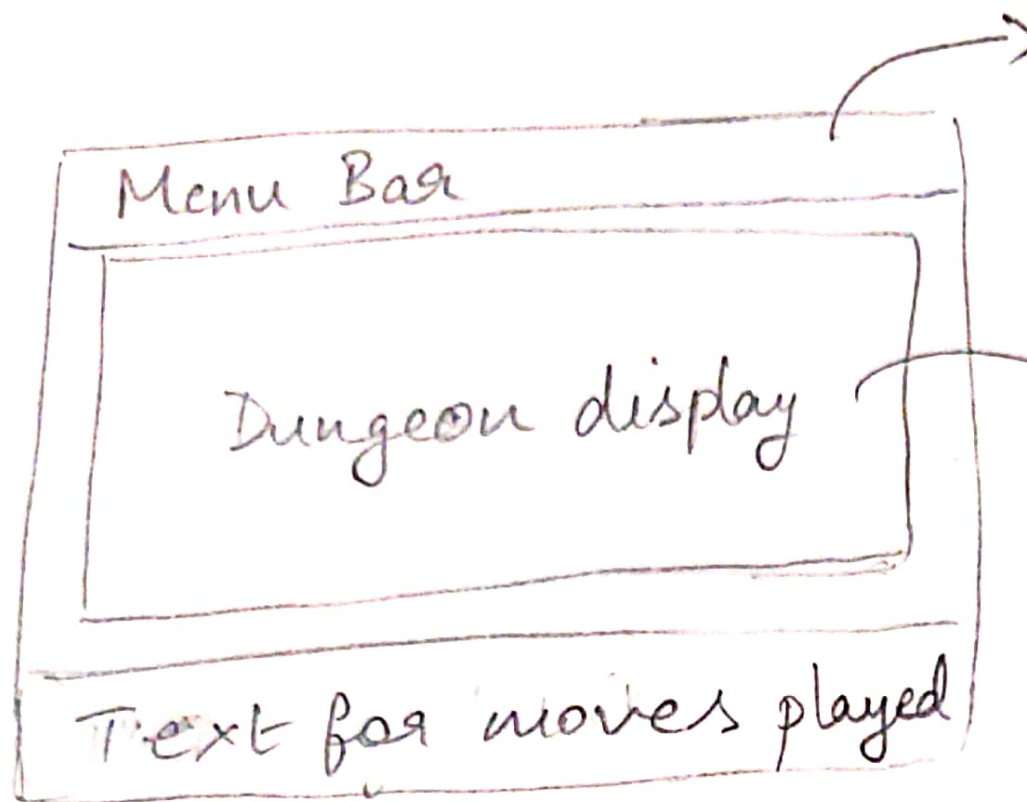 Menu Bar
Dungeon display
Text for moves played